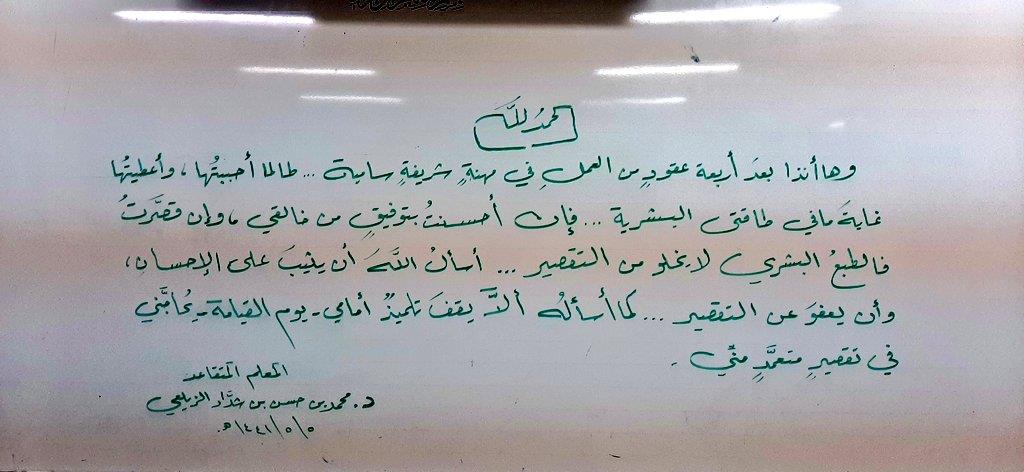 الحمدُ للَّه
وهاأنذا بعدَ أربعة عقودٍ من العملِ في مهنةٍ شريفةٍ سامية ... طالما أحببتُها ، وأعطيتُها
غايةَ مافي طاقتي البشرية ... فإن أحسنتُ بتوفيقٍ من خالقي ، وإن قصَّرتُ
فالطبعُ البشري لايخلو من التقصير ... أسألُ اللَّهَ أن يثيبَ على الإحسانِ ،
وأن يعفوَ عن التقصير ... كما أسألُه ألاَّ يقفَ تلميذٌ أمامي - يوم القيامة - يُحاجُّني
في تقصيرٍ متعمَّدٍ منِّي .
المعلم المتقاعد
د . محمد بن حسن بن شدَّاد الزيلعي
٥ / ٥ / ١٤٤١ هـ